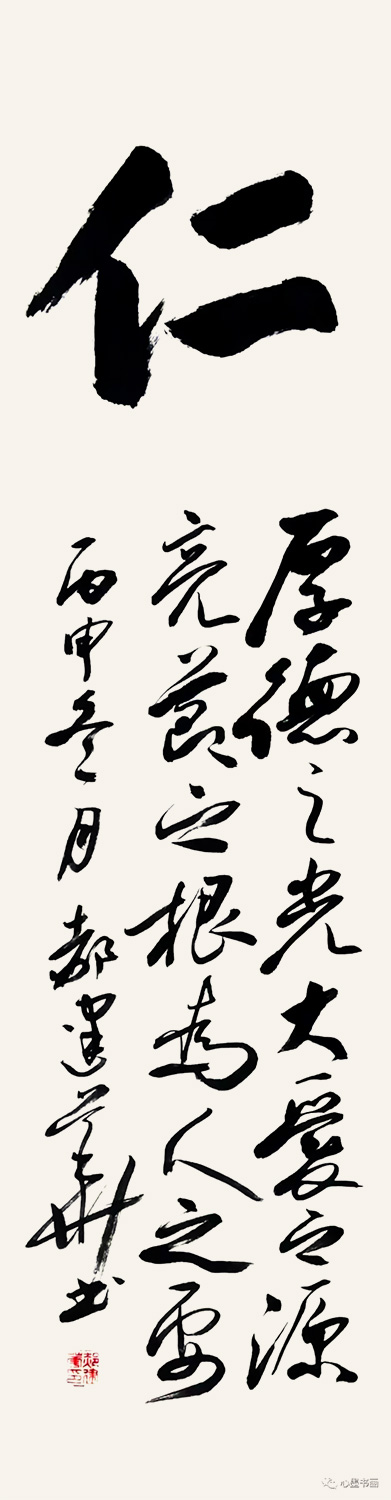 仁
厚德之光大爱之源
亮节之根为人之要
丙申冬月 郝建华书
心墨书画